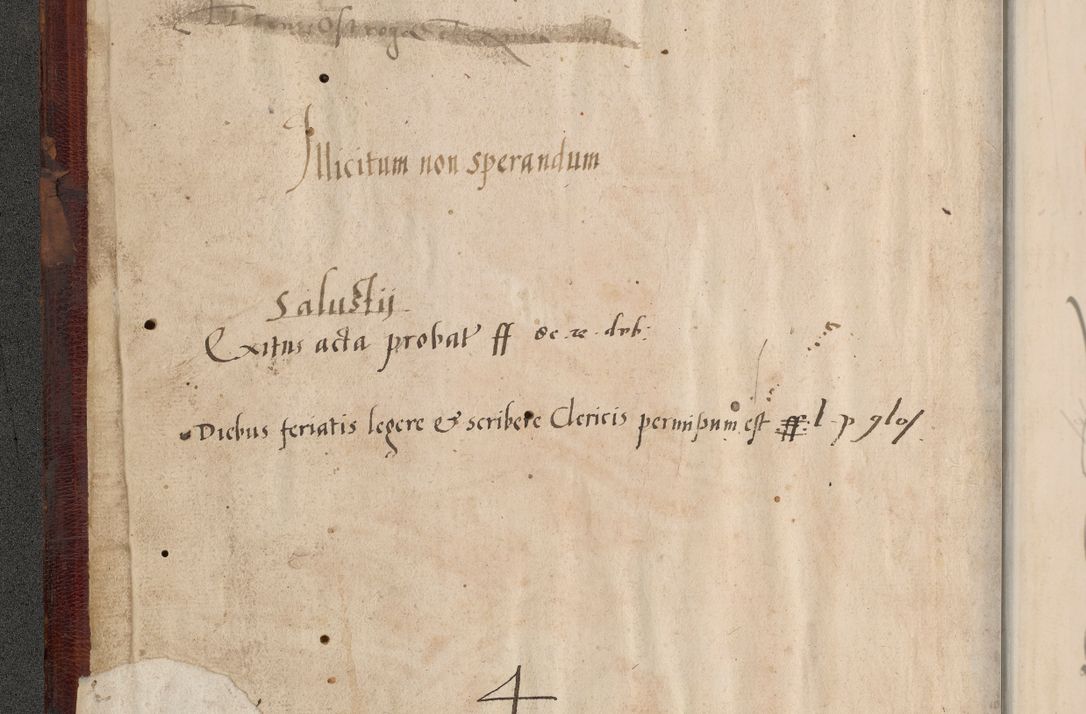 Illicitum non sperandum
Salustij
Exitus acta probat ff de re dub:
Diebus feriatis legere & scribere Clericis permissum est ff. l. p
4